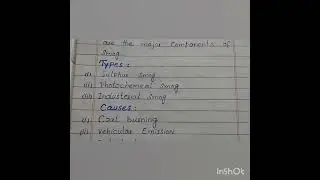 are the major components of
Smog
Types :
(i) Sulphur Smog
(ii) Photochemical Smog
(iii) Industrial Smog
Causes :
(i) Coal burning
(ii) Vehicular Emission
InShOt